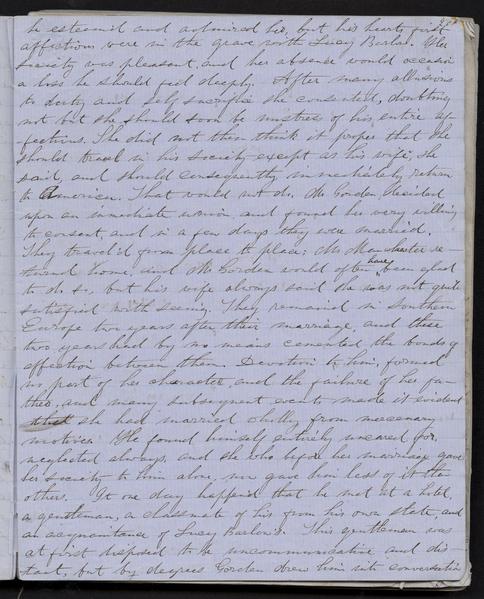 he esteem'd and admired her, but his hearts first
affections were in the grave with Lucy Barlow. Her
society was pleasant, and her absence would occasion
a loss he should feel deeply. After many allusions
to duty and self sacrifice she consented, doubting
not but she should soon be mistress of his entire af-
fections. She did not then think it proper that she
should travel in his society except as his wife, she
said, and should consequently immediately return
to America. That would not do, Mr Gorden decided
upon an immediate union, and found her very willing
to consent, and in a few days they were married.
They travel'd from place to place; Mr Manchester re-
turned home, and Mr Gorden would often have been glad
to do so, but his wife always said she was not quite
satisfied with seeing. They remained in southern
Europe two years after their marriage, and these
two years had by no means cemented the bonds of
affection between them. Devotion to him, formed
no part of her character, and the failure of her fa-
ther, and many subsequent events made it evident
that she had married wholly from mercenary
motives. He found himself entirely uncared for,
neglected always, and she who before her marriage gave
her society to him alone, now gave him less of it than
others. It one day happened that he met at a hotel,
a gentleman, a classmate of his from his own state, and
an acquaintance of Lucy Barlow's. This gentleman was
at first disposed to be uncommunicative and dis-
tant, but by degrees Gorden drew him into conversation